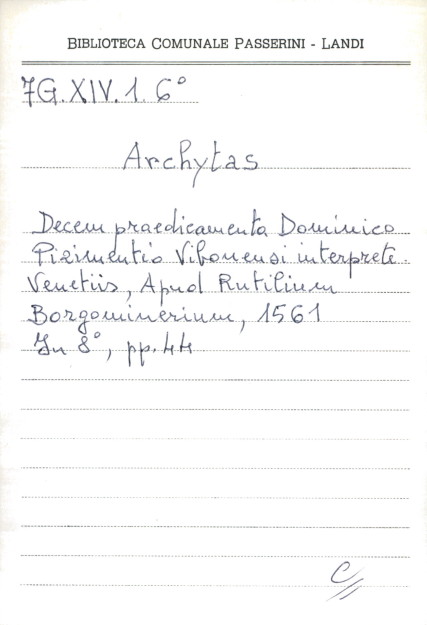 BIBLIOTECA COMUNALE PASSERINI - LANDI
7G.XIV.1.6°
Archytas
Decem praedicamenta Dominico
Pizimentio Vibonensi interprete.
Venetiis, Apud Rutilium
Borgominerium, 1561
In 8°, pp. 44
C